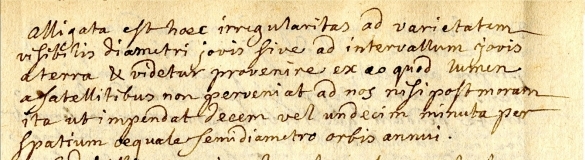 alligata est haec irregularitas ad varietatem
visibilis diametri jovis sive ad intervallum jovis
a terra & videtur provenire ex eo quod lumen
a satellitibus non perveniat ad nos nisi post moram
ita ut impendat decem vel undecim minuta per
spatium aequale semidiametro orbis annui.